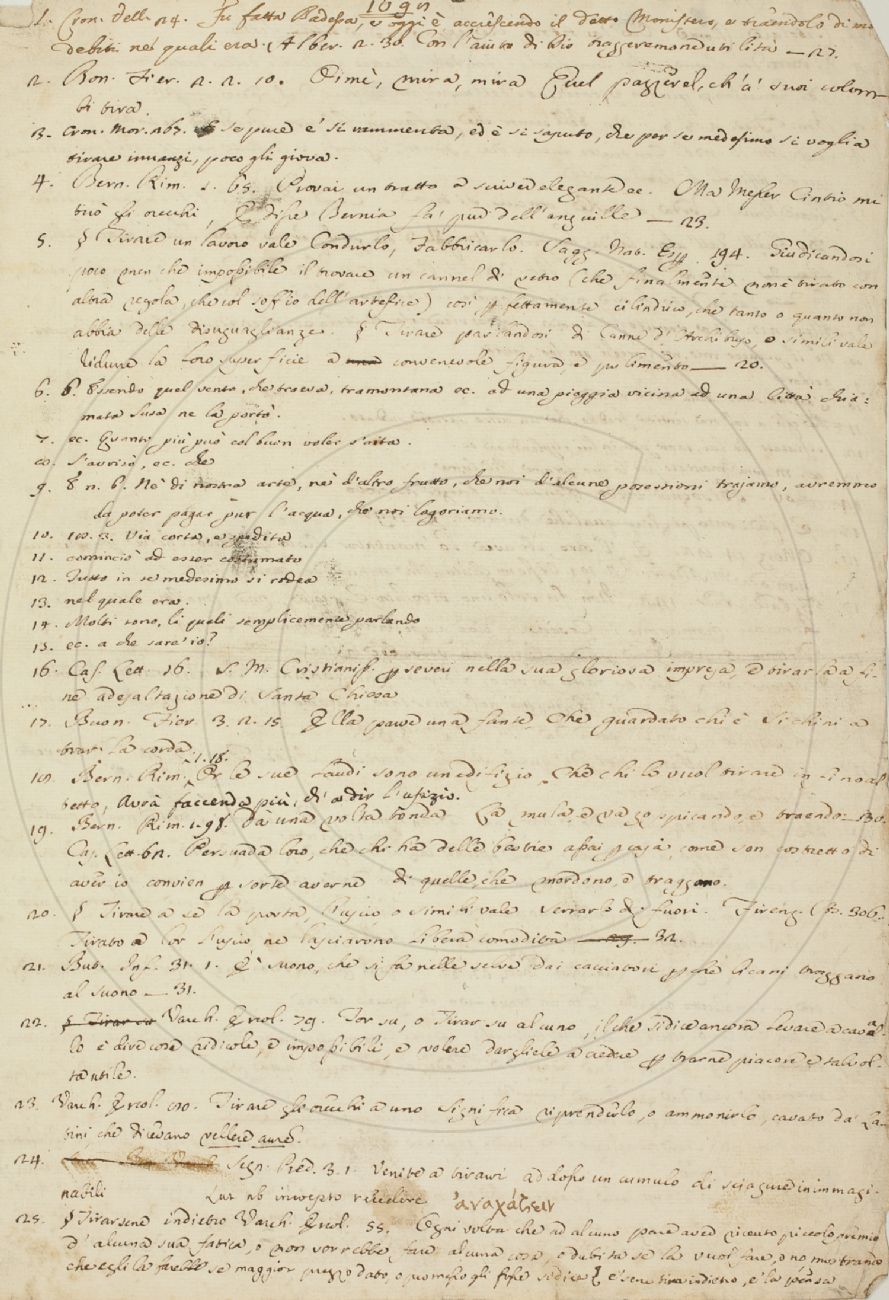 1. Cron. dell. 24. Fu fatta Badessa, e oggi è accrescendo il detto Monistero, e traendolo di mo
debiti ne' quali era. (Alber. 2. 30. Con l'aiuto di Dio traggeremond' utilità — 27.
2. Bon. Fier. 2. 2. 10. Oimè, mira, mira Quel pazzerel, ch' a' suoi colom-
bi tira.
3. Cron. Mor. 263. se pure e' si rammenta, ed è si saputo, che per se medesimo si voglia
tirare innanzi, poco gli giova.
4. Bern. Rim. 1. 65. Provai un tratto a scriver elegante ec. Ma Messer Cintio mi
tirò gli orecchi, E disse Bernia fa' pur dell' anguille — 23.
5. § Tirare un lavoro vale Condurlo, Fabbricarlo. Sagg. Nat. Esp. 194. Giudicandosi
poco men che impossibile il trovare un cannel di vetro (che finalmente non è tirato con
altra regola, che col soffio dell' artefice) così perfettamente cilindrico, che tanto o quanto non
abbia delle disuguaglianze. § Tirare parlandosi di Canne d' Archibuso, o simili vale
Ridurre la loro superficie a convenevole figura e pulimento — 20.
6. 6. Essendo quel vento, che traeva, tramontana ec. ad una pioggia vicina ad una Città chia-
mata Susa ne la portò.
7. ec. Quanto più può col buon voler s'aita.
8. S'avvisò, ec. che
9. 8 n. 6. Nè di nostra arte, nè d'altro frutto, che noi d'alcune possessioni trajamo, avremmo
da poter pagar pur l'acqua, che noi logoriamo.
10. 10. 3. Via corta, e spedita
11. cominciò ad esser costumato
12. Tutto in se medesimo si rodea
13. nel quale era.
14. Molti sono, li quali semplicemente parlando
15. ec. a che sare' io?
16. Cas. Lett. 16. S. M. Cristianiss. perseveri nella sua gloriosa impresa, e tirarsa a fi-
ne ad esaltazione di Santa Chiesa
17. Buon. Fier. 3. 2. 15. Ella pare una fante, Che guardato chi è si chini a
tirar la corda.
18. Bern. Rim. 1. 18. Per le sue laudi sono un edifizio Che chi lo vuol tirare in fino al
tetto, Avrà faccenda più, ch' a dir l'ufizio.
19. Bern. Rim. 1. 98. Da una volta tonda La mula, e va zo spicando, e traendo — 30.
Cas. Lett. 62. Persuada loro, che chi ha delle bestie assai per casa, come son costretto di
aver io convien per sorte averne di quelle, che mordono, e traggano.
20. § Tirare a se la porta, l'uscio o simili vale Serrarlo di fuori. Firenz. 306.
Tirato a lor l'uscio, ne lasciarono libera comodità — 32.
21. But. Inf. 31. 1. È suono, che si fa nelle selve dai cacciatori perchè li cani traggano
al suono — 31.
22. Varch. Ercol. 79. Tor su, o Tirar su alcuno, il che si dice ancora levare a caval-
lo è dire cose ridicole, e impossibili, e volere dargliele a credere per trarne piacere e talvol-
ta utile.
23. Varch. Ercol. 80. Tirare gli orecchi a uno significa riprenderlo, o ammonirlo, cavato da' La-
tini che dicevano vellere aures.
24. Segn. Pred. 3. 1. Venite a tirarvi addosso un cumulo di sciagure inimmagi-
nabili Qui ab incepto recedere ἀναχάζειν
25. § Tirarsene indietro Varch. Ercol. 55. Ogni volta che ad alcuno pare aver ricevuto piccolo premio
d' alcuna sua fatica, o non vorrebbe fare alcuna cosa, o dubita se la vuol fare, o no mostrando
che egli la farebbe se maggior prezzo dato, o promesso gli fosse si dice e' se ne tira indietro, e' la pensa